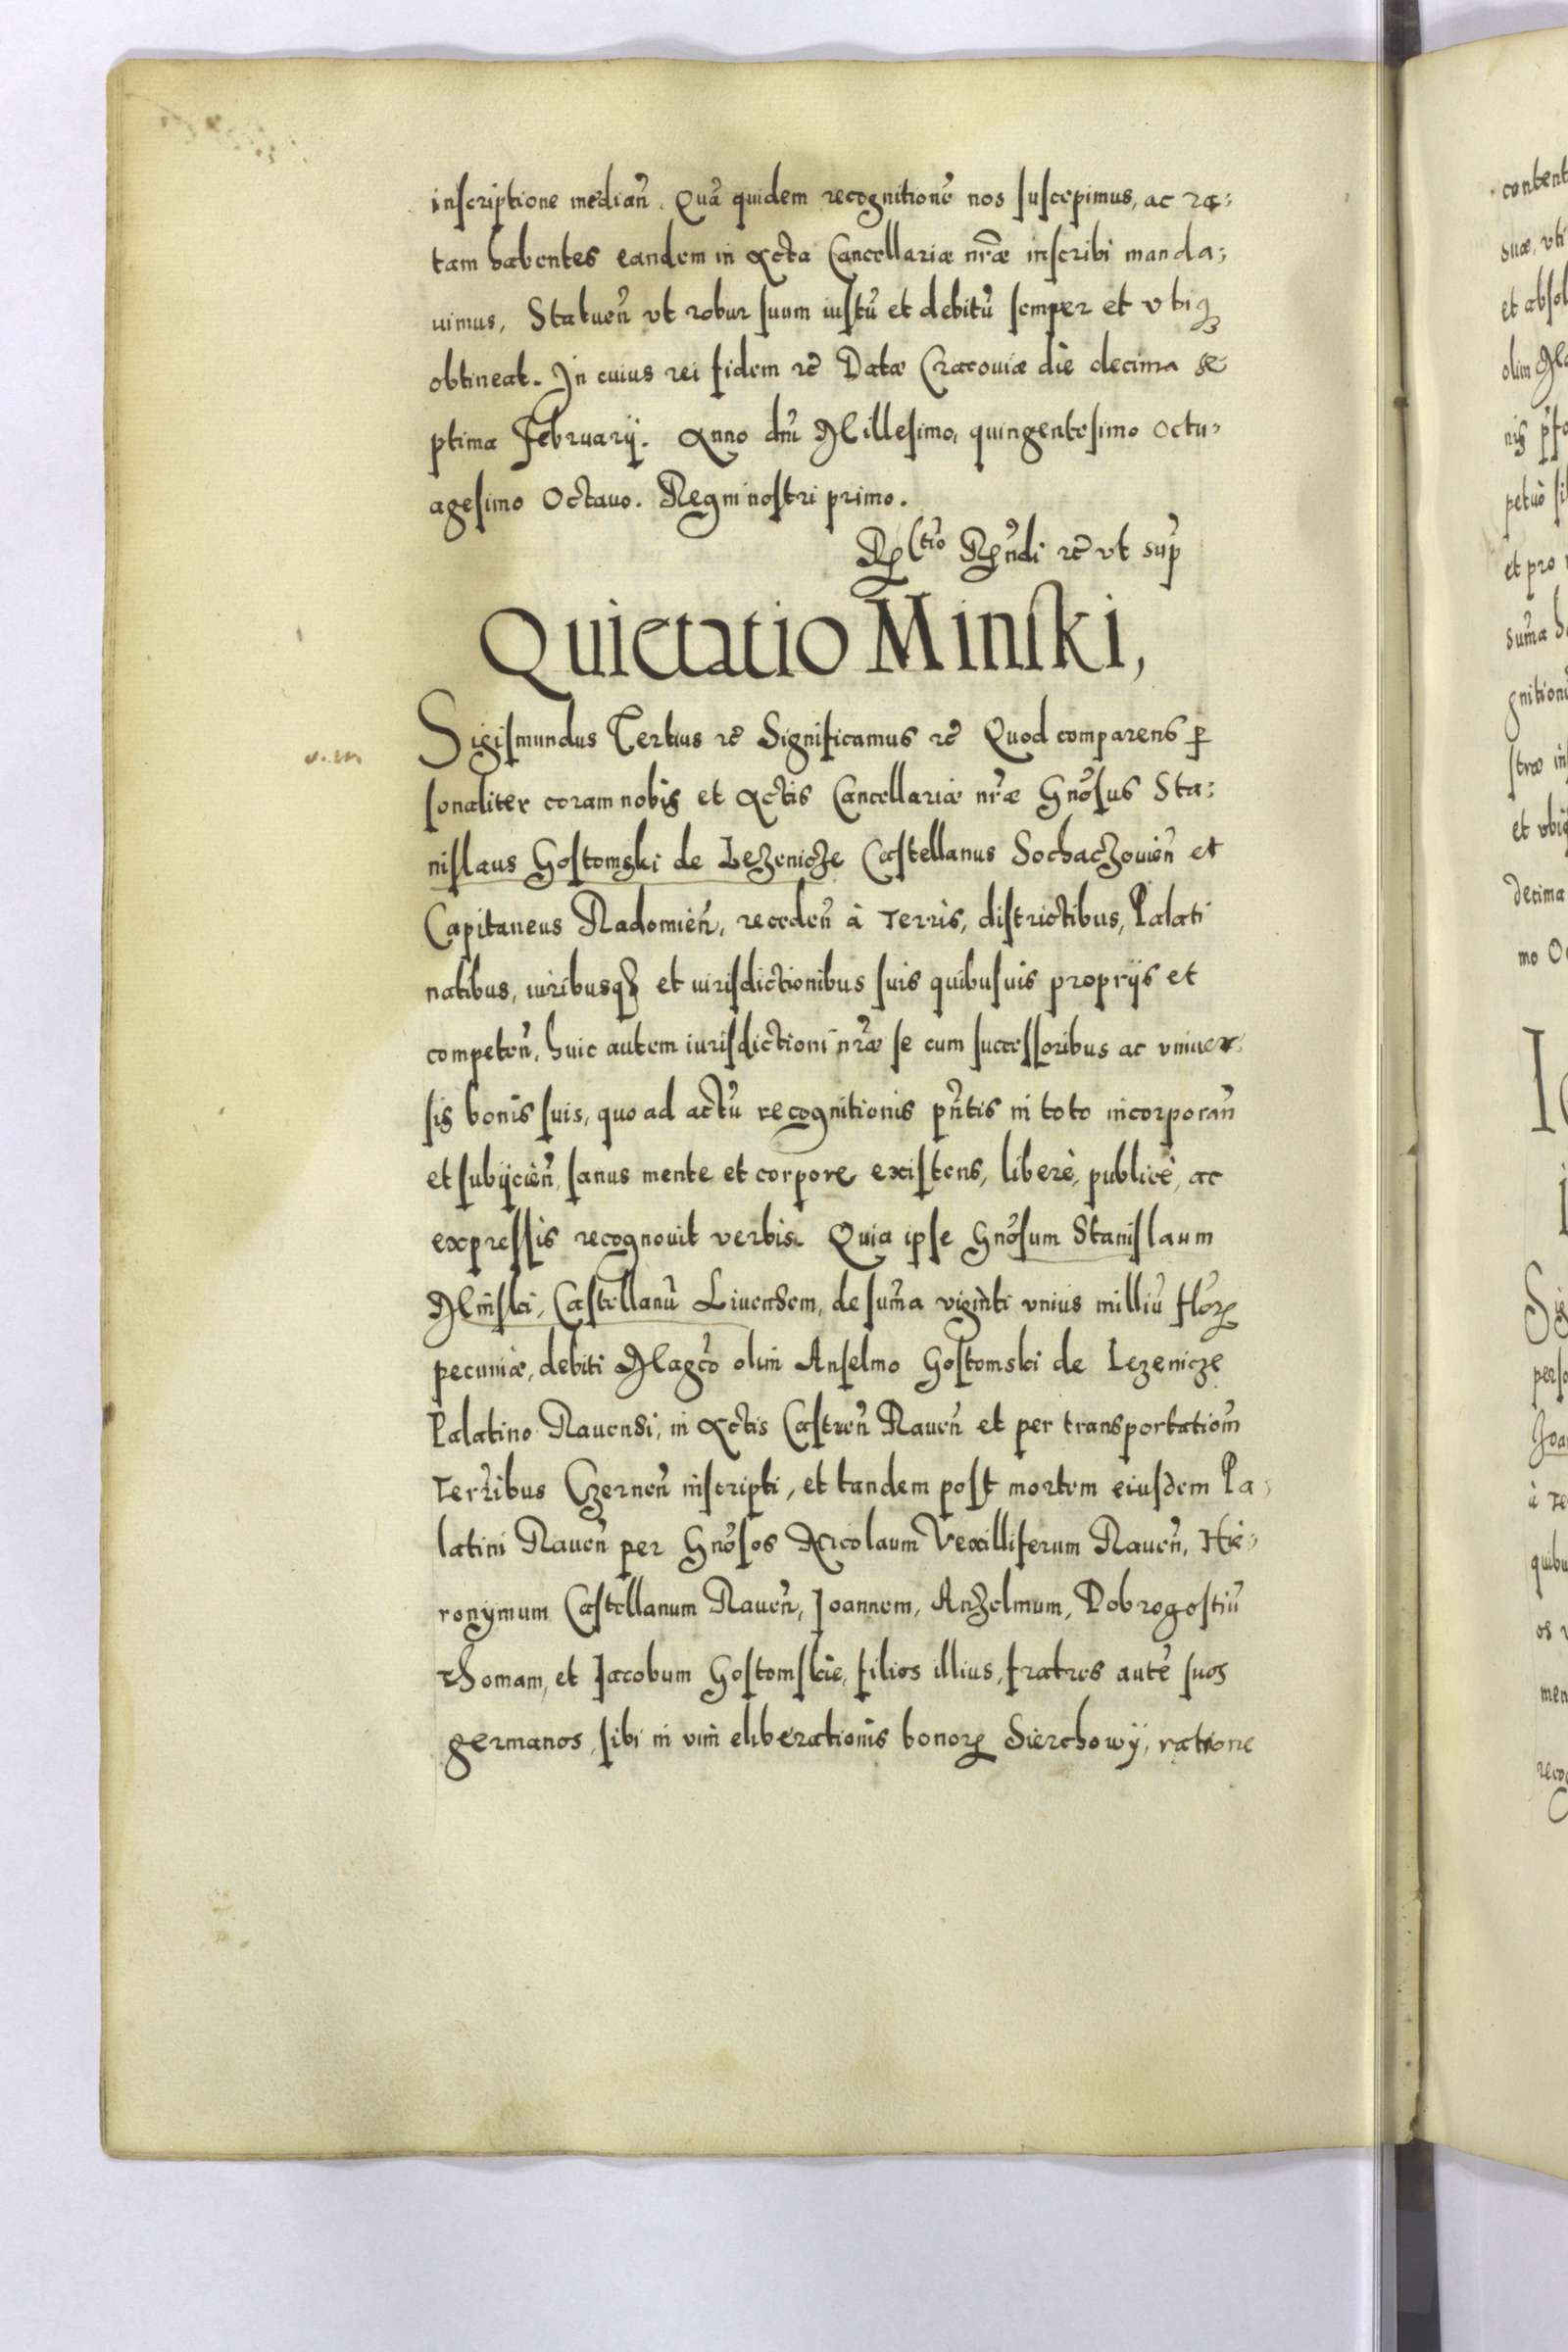 inscriptione median̄. Quā quidem recognitionē nos suscepimus, ac ra:
tam habentes eandem in Acta Cancellariæ nr̄æ inscribi manda:
uimus, Statuen̄ vt robur suum iustū et debitū semper et vbiq
obtineat. In cuius rei fidem etc̄ Datæ Cracouiæ die decima se
ptima February. Anno dni Millesimo, quingentesimo Octu:
agesimo Octauo. Regni nostri primo.
Rel̃tio Rn̄di etc̄ vt sup
Quietatio Minski,
Sigismundus Tertius etc̄ Significamus etc̄ Quod comparens per
sonaliter coram nobis et Actis Cancellariæ nr̄æ Gnōsus Sta:
nislaus Gostomski de Lezenicze Castellanus Sochaczouien̄ et
Capitaneus Radomien̄, receden̄ à Terris, districtibus, Palati
natibus, iuribusqz et iurisdictionibus suis quibusuis proprijs et
competen̄, huic autem iurisdictioni nr̄æ se cum successoribus ac vniuer:
sis bonis suis, quo ad actū recognitionis pn̄tis in toto incorporan̄
et subijcien̄, sanus mente et corpore existens, liberè, publicè, ac
expressis recognouit verbis. Quia ipse Gnōsum Stanislaum
Minski, Castellanū Liuensem, de sum̄a viginti vnius milliū flor
pecuniæ, debiti Magco olim Anselmo Gostomski de Lezenicze
Palatino Rauensi, in Actis Castren̄ Rauen̄ et per transportatiom̄
Terr̄ibus Czernen̄ inscripti, et tandem post mortem eiusdem Pa:
latini Rauen̄ per Gnōsos Nicolaum Vexilliferum Rauen̄, Hie:
ronymum Castellanum Rauen̄, Joannem, Anzelmum, Dobrogostiū
Thomam, et Jacobum Gostomskie, filios illius, fratres autē suos
germanos, sibi in vim eliberationis bonor Sierchowÿ, ratione